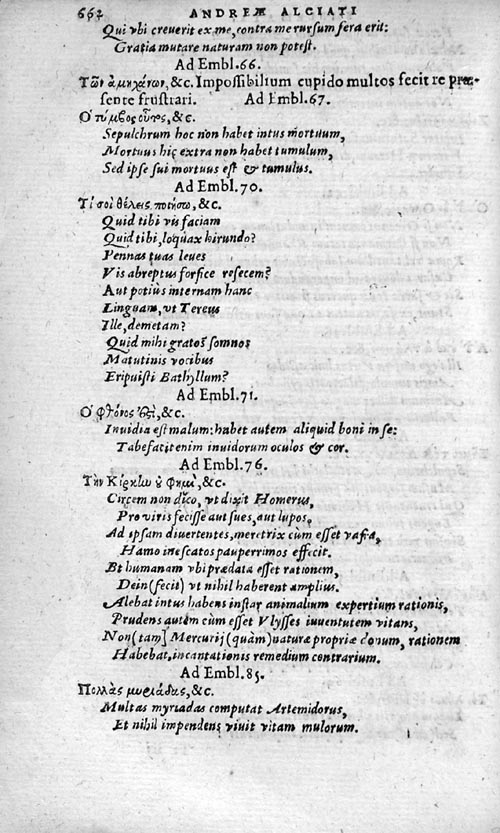 662 ANDREÆ ALCIATI
Qui vbi creuerit ex me, contra me rursum fera erit:
Gratia mutare naturam non potest.
Ad Embl. 66.
Τῶν ἀμηχάνων, &c. Impoſſibilium cupido multos fecit re præ-
ſente fruſtrari. Ad Embl. 67.
Ο τύμβος οὗτος, &c.
Sepulchrum hoc non habet intus mortuum,
Mortuus hic extra non habet tumulum,
Sed ipſe ſui mortuus eſt & tumulus.
Ad Embl. 70.
Τί σοι θέλεις ποιήσω, &c.
Quid tibi vis faciam
Quid tibi, loquax hirundo?
Pennas tuas leues
Vis abreptus forfice reſecem?
Aut potiùs internam hanc
Linguam, vt Tereus
Ille, demetam?
Quid mihi gratos ſomnos
Matutinis vocibus
Eripuiſti Bathyllum?
Ad Embl. 71.
Ο φθόνος ἐςὶ, &c.
Inuidia eſt malum: habet autem aliquid boni in ſe:
Tabefacit enim inuidorum oculos & cor.
Ad Embl. 76.
Τὴν Κίρκlω ȣ̓ φημὶ, &c.
Circem non dico, vt dixit Homerus,
Pro viris feciſſe aut ſues, aut lupos,
Ad ipſam diuertentes, meretrix cùm eſſet vafra,
Hamo ineſcatos pauperrimos effecit.
Et humanam vbi prædata eſſet rationem,
Dein (fecit) vt nihil haberent amplius.
Alebat intus habens inſtar animalium expertium rationis,
Prudens autem cùm eſſet Vlyſſes iuuentutem vitans,
Non [tam] Mercurij (quàm) naturæ propriæ donum, rationem
Habebat, incantationis remedium contrarium.
Ad Embl. 85.
Πολλὰς μυριάδας, &c.
Multas myriadas computat Artemidorus,
Et nihil impendens viuit vitam mulorum.